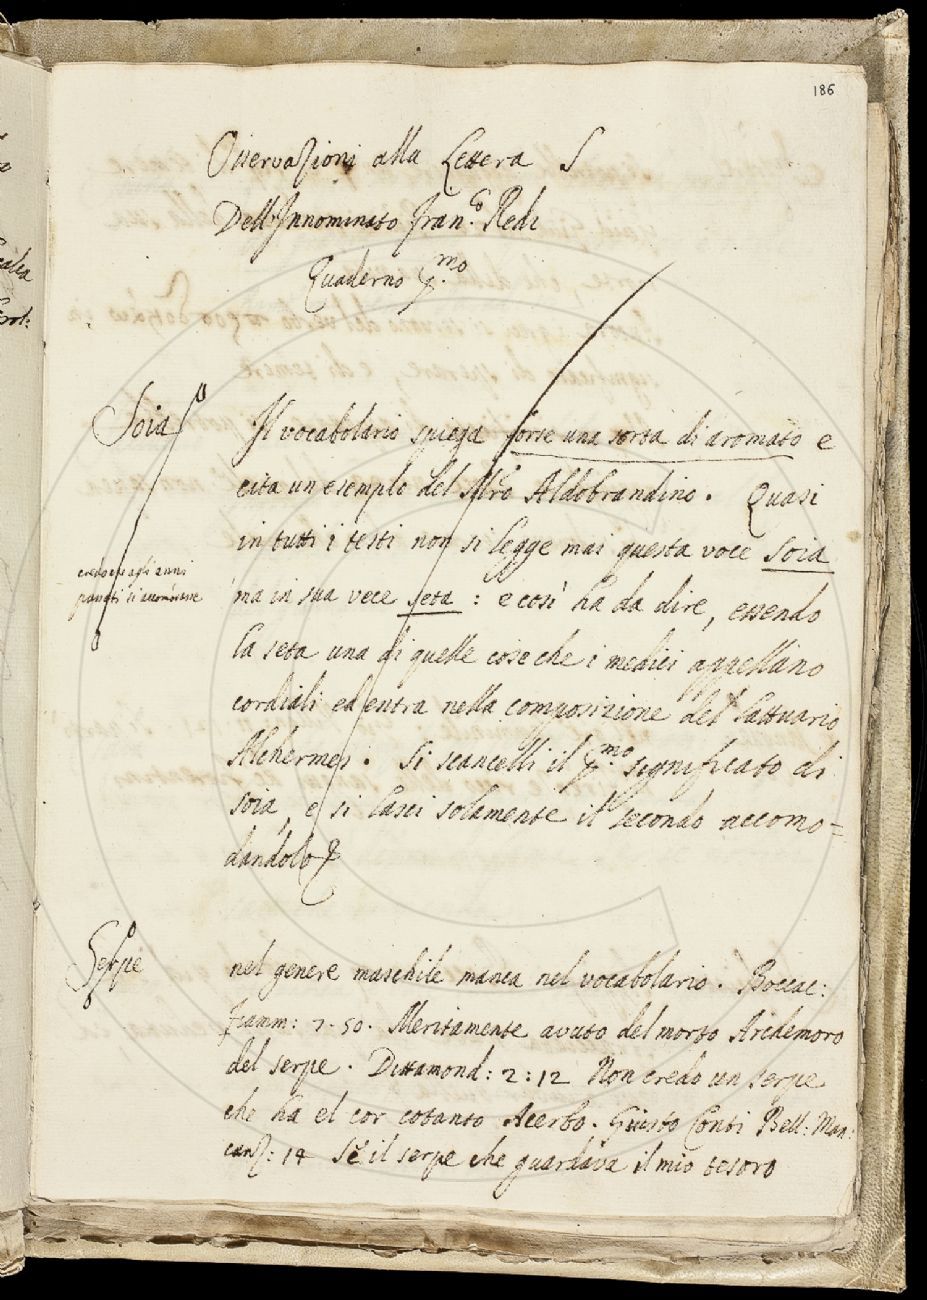 186
Osservazioni alla Lettera S
Dell'Innominato Fran.co Redi
Quaderno p.mo
Soia
Il vocabolario spiega forse una sorta di aromato e
cita un esempio del Mro Aldobrandino. Quasi
in tutti i testi non si legge mai questa voce soia
credo che agli anni
passati si ammisse
ma in sua vece seta: e così ha da dire, essendo
la seta una di quelle cose che i medici appellano
cordiali ed entra nella composizione del lattuario
Alchermes. Si scancelli il p.mo significato di
soia, e si lasci solamente il secondo accomo=
dandolo &
Serpe
nel genere maschile manca nel vocabolario. Boccac:
Fiamm: 7. 50. Meritamente avuto del morto Archemoro
del serpe. Dittamond: 2:12 Non credo un serpe
che ha el cor cotanto Acerbo. Giusto Conti Bell: Man:
canz: 14 Se il serpe che guardava il mio tesoro